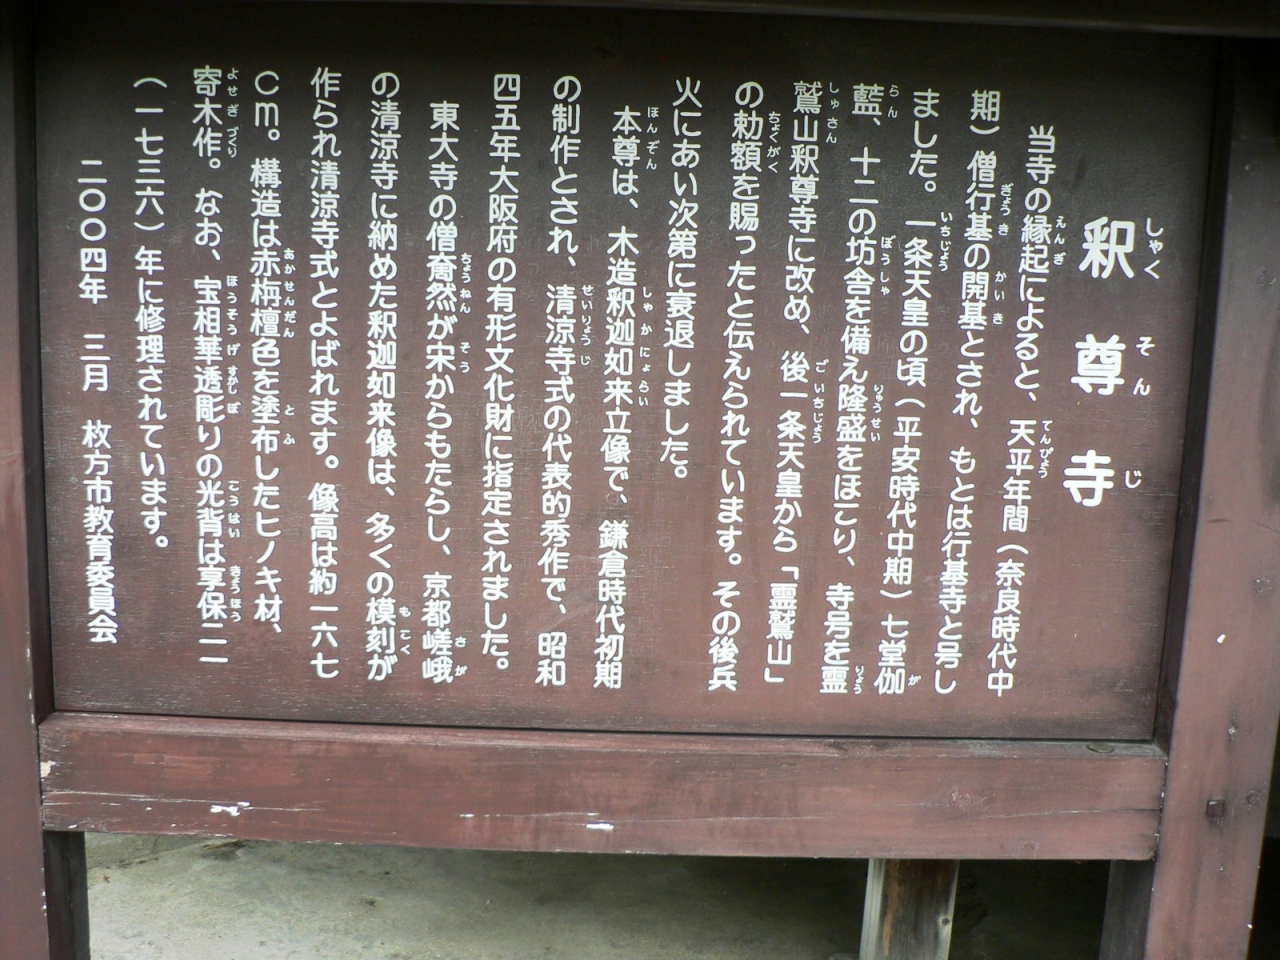 釈尊寺
当寺の縁起によると、天平年間（奈良時代中
期）僧行基の開基とされ、もとは行基寺と号し
ました。一条天皇の頃（平安時代中期）七堂伽
藍、十二の坊舎を備え隆盛をほこり、寺号を霊
鷲山釈尊寺に改め、後一条天皇から「霊鷲山」
の勅額を賜ったと伝えられています。その後兵
火にあい次第に衰退しました。
本尊は、木造釈迦如来立像で、鎌倉時代初期
の制作とされ、清涼寺式の代表的秀作で、昭和
四五年大阪府の有形文化財に指定されました。
東大寺の僧奝然が宋からもたらし、京都嵯峨
の清涼寺に納めた釈迦如来像は、多くの模刻が
作られ清涼寺式とよばれます。像高は約一六七
cm。構造は赤栴檀色を塗布したヒノキ材、
寄木作。なお、宝相華透彫りの光背は享保二一
（一七三六）年に修理されています。
二〇〇四年　三月　枚方市教育委員会